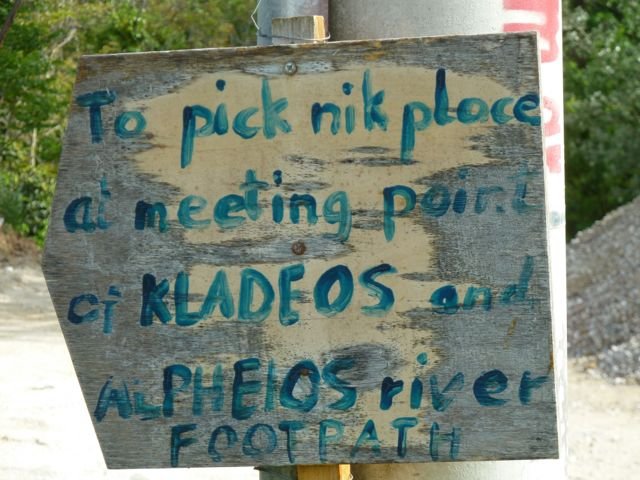 To pick nik place
at meeting point
of KLADEOS and
ALPHEIOS river
FOOTPATH